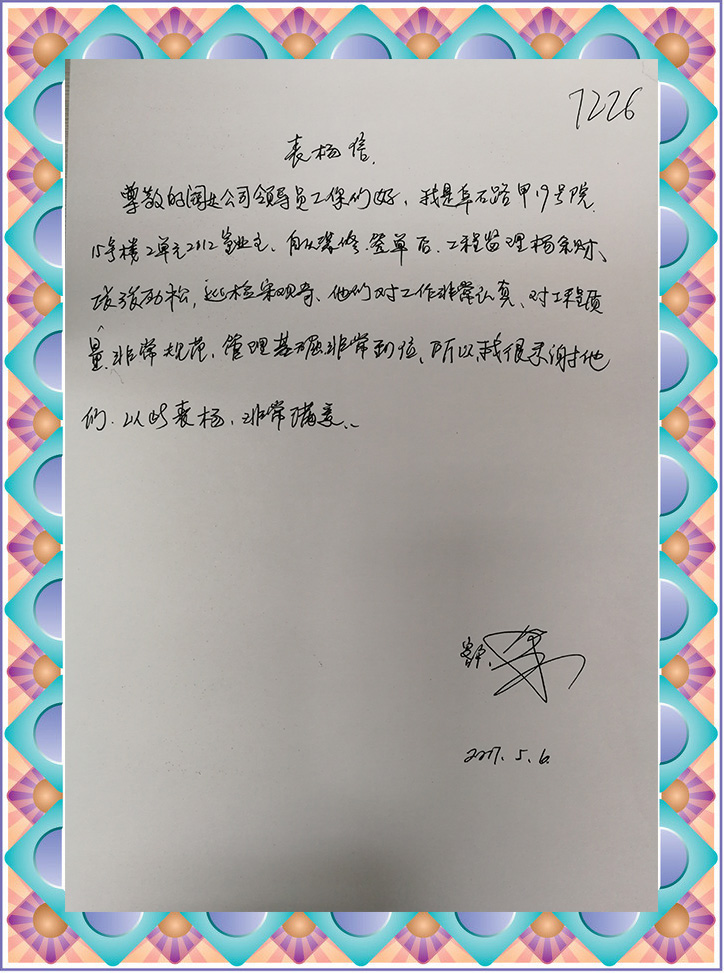 7226
表杨信.
尊敬的阔达公司领导员工你们好、我是阜石路甲19号院
15号楼2单元2012室业主、自从装修.签单后.工程监理杨
劲松,巡检宋观奇、他们对工作非常认真、对工程质
量.非常规范,管理其他非常到位、所以我很感谢他
们.以此表杨、非常满意、、
客户、
2017.5.6.